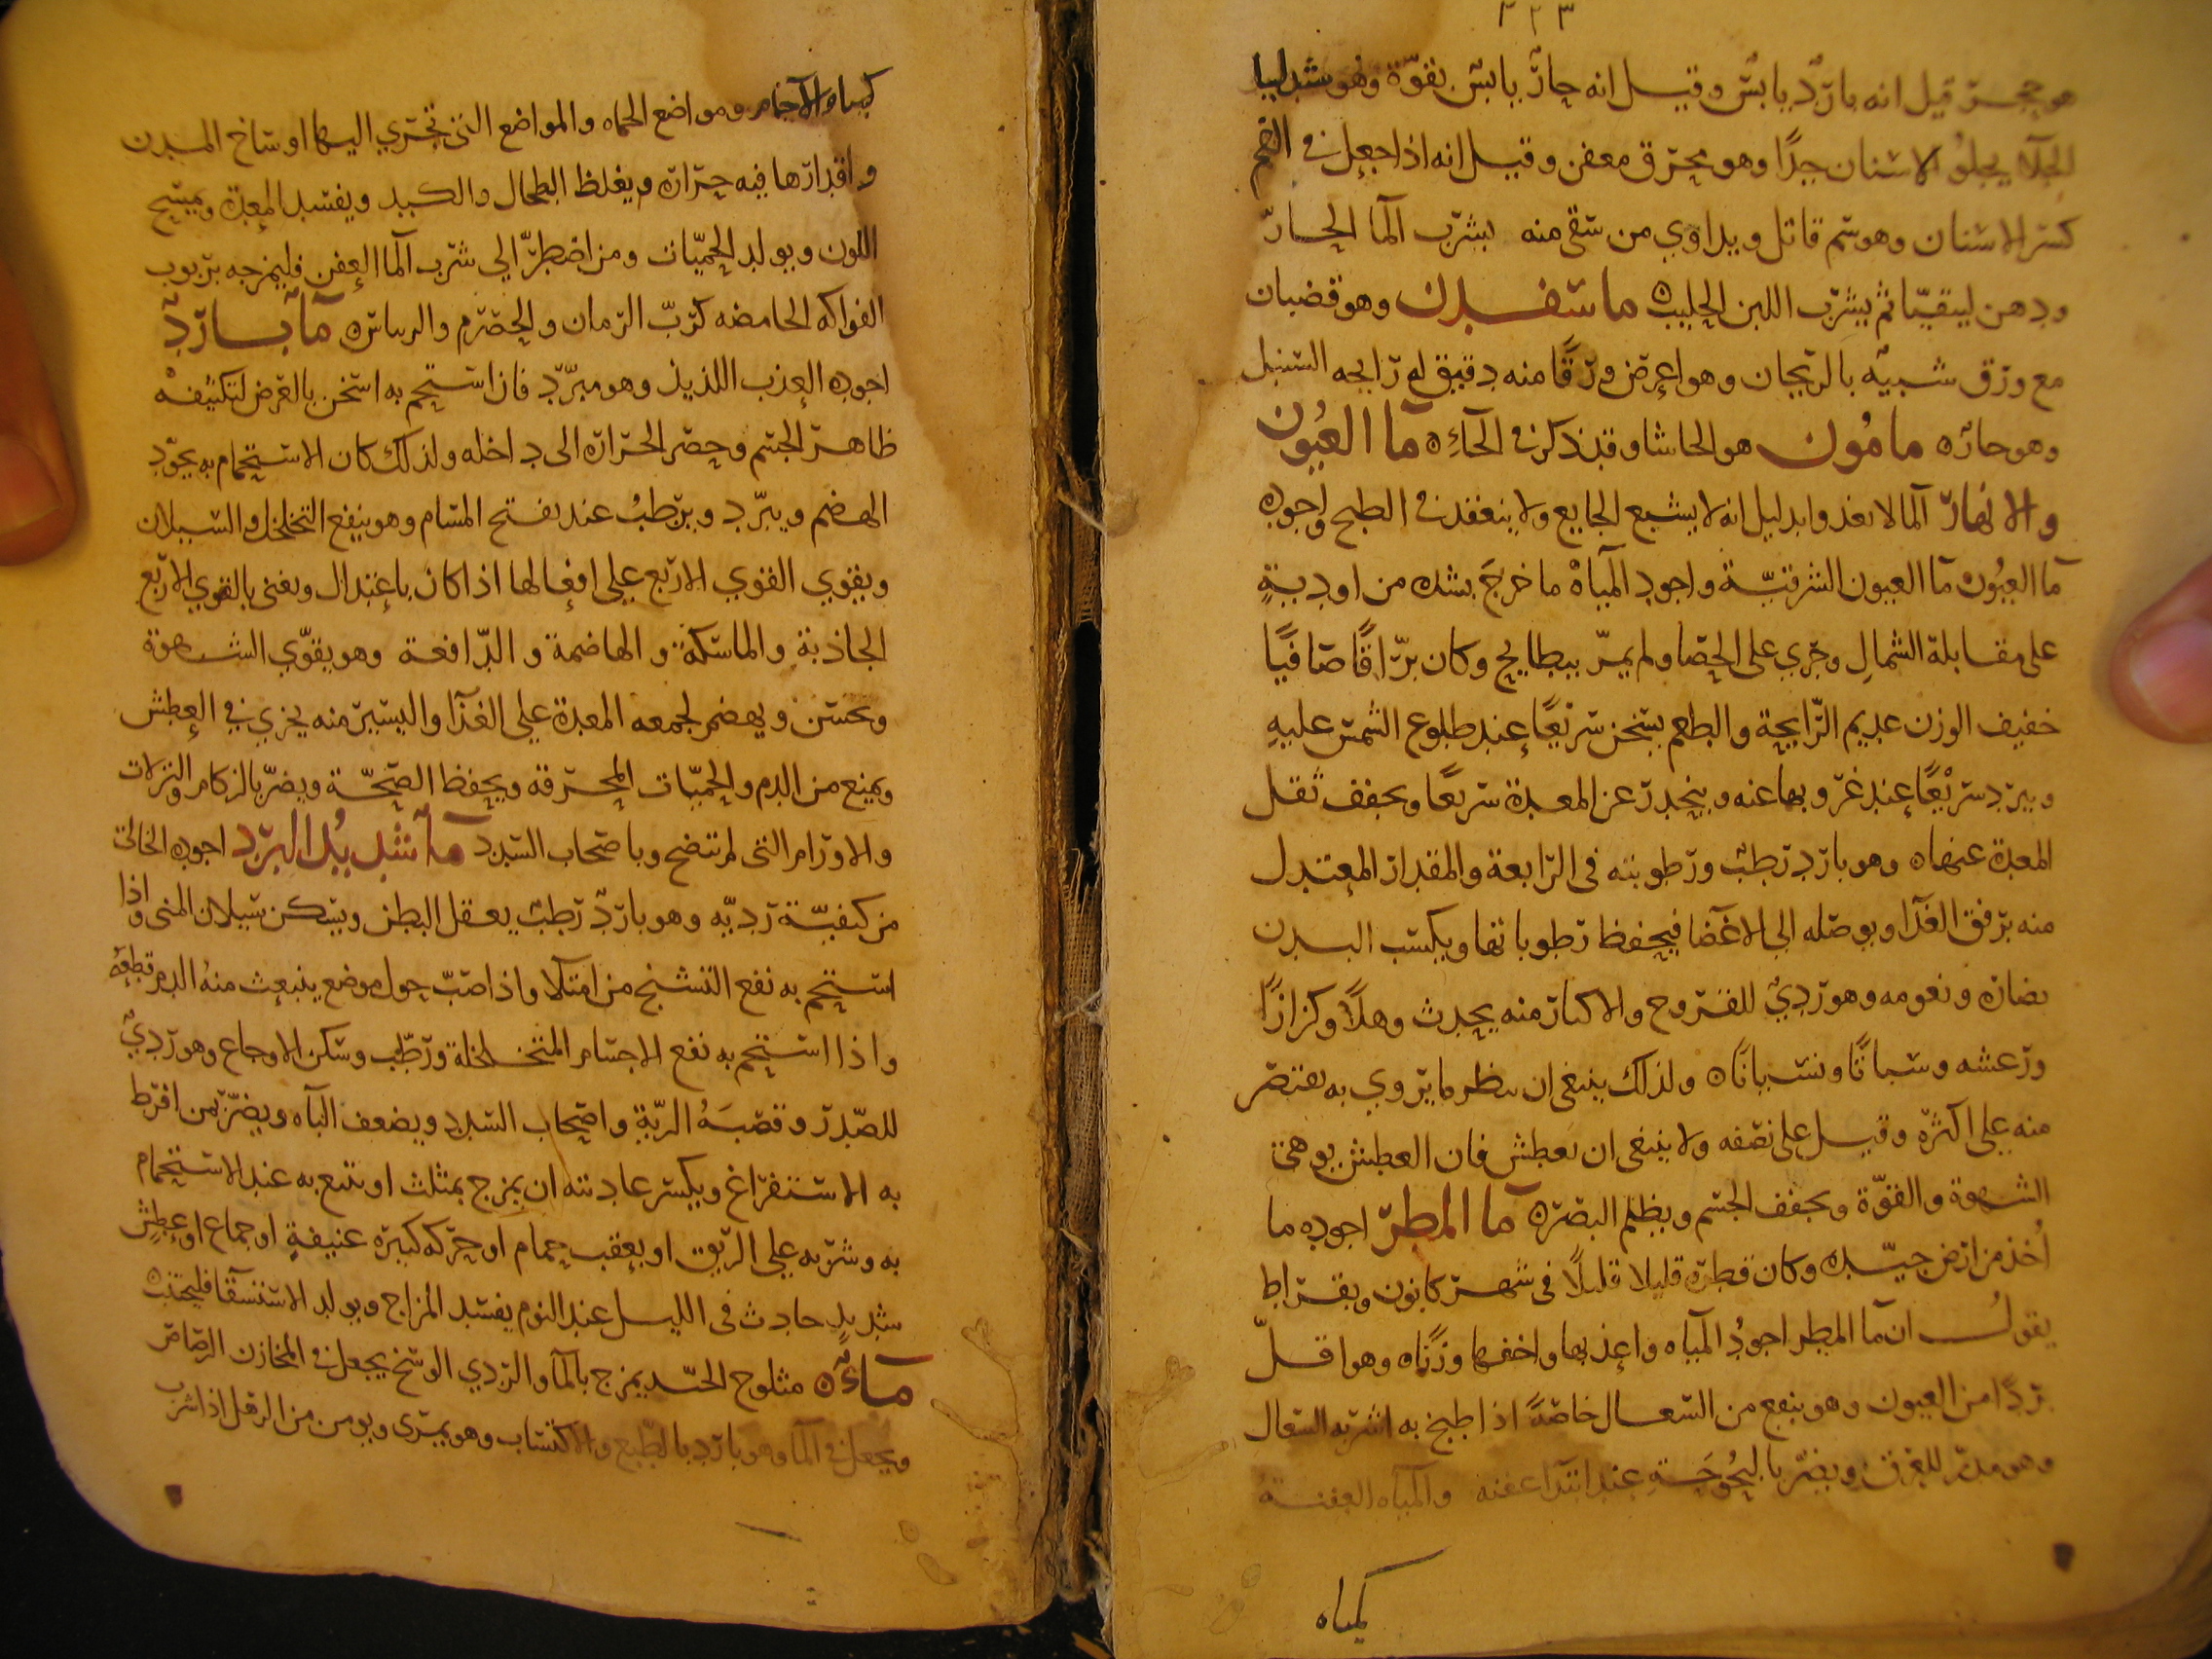 ٢٢٣
هو حجر قيل انه بارد يابس وقيل انه حار يابس بقوة وهو شديد
الجلا يجلو الاسنان جدا وهو محرق معفن وقيل انه اذا جعل في الفم
كسر الاسنان وهو سم قاتل ويداوي من سقي منه بشرب الما الحار
ودهن ليتقيا ثم يشرب اللبن الحليب ماسفدن وهو قضبان
مع ورق شبيه بالريحان وهو اعرض ورقا منه دقيق له رايحه السنبل
وهو حاره مامون هو الحاشا وقد ذكر في الحاء ما العيون
والانهار الما لا يغذوا بدليل انه لا يشبع الجايع ولا ينعقد في الطبخ واجوده
ما العيون ما العيون الشرقية واجود المياه ما خرج بشده من اودية
على مقابلة الشمال وجري على الحصا ولم يمر ببطايح وكان براقا صافيا
خفيف الوزن عديم الرايحة والطعم يسخن سريعا عند طلوع الشمس عليه
ويبرد سريعا عند غروبها عنه وينحدر عن المعدة سريعا ويخفف ثقل
المعدة عنها وهو بارد رطب ورطوبته في الرابعة والمقدار المعتدل
منه يرقق الغذا ويوصله الي الاعضا فيحفظ رطوباتها ويكسب البدن
نضاره ونعومه وهو ردي للقروح والاكثار منه يحدث وهلا وكزازا
ورعشه وسباتا ونسيانا ولذلك ينبغي ان ينظر ما يروي به يقتصر
منه علي اكثره وقيل على نصفه ولا ينبغي ان يعطش فان العطش يوهن
الشهوة والقوة ويجفف الجسم ويظلم البصر ما المطر اجوده ما
اخذ من ارض جيده وكان قطره قليلا قليلا في شهر كانون وبقراط
يقول ان ما المطر اجود المياه واعذبها واخفها وزنا وهو اقل
بردا من العيون وهو ينفع من السعال خاصة اذا طبخ به اشربه السعال
وهو مدر للعرق ويضر بالبحوحة عند ابتدا عفنه والمياه العفنة
كمياه
كمياه الاجام ومواضع الحماه والمواضع التي تجري اليها اوساخ المدن
واقذارها فيه حرارة ويغلظ الطحال والكبد ويفسد المعدة ويسمج
اللون ويولد الحميات ومن اضطر الي شرب الما العفن فليمزجه بربوب
الفواكه الحامضه كرب الرمان والحصرم والريباس ما بارد
اجوده العذب اللذيذ وهو مبرد فان استحم به اسخن بالعرض لتكثيفه
ظاهر الجسم وحصر الحرارة الى داخله ولذلك كان الاستحمام به يجود
الهضم ويبرد ويرطب عند تفتح المسام وهو ينفع التخلخل والسيلان
ويقوي القوي الاربع علي افعالها اذا كان باعتدال ونعني بالقوي الاربع
الجاذبة والماسكة والهاضمة والدافعة وهو يقوي الشهوة
ويحسن ويهضم لجمعه المعدة علي الغذا واليسير منه يجزي في العطش
ويمنع من الدم والحميات المحرقه ويحفظ الصحة ويضر بالزكام والنزلات
والاورام التي لم تنضج وباصحاب السدد ما شديد البرد اجوده الخالي
من كيفية رديه وهو بارد رطب يعقل البطن ويسكن سيلان المني واذا
استحم به نفع التشنج من امتلا واذا صب حول موضع ينبعث منه الدم قطعه
واذا استحم به نفع الاجسام المتخلخلة ورطب وسكن الاوجاع وهو ردي
للصدر وقصبة الرية واصحاب السدد ويضعف الباه ويضر بمن افرط
به الاستفراغ ويكسر عاديته ان يمزج بمثلث او يتبع به عند الاستحمام
به وشربه علي الريق او بعقب حمام او حركه كبيره عنيفة او جماع او عطش
شديد حادث في الليل عند النوم يفسد المزاج ويولد الاستسقا فليجتنب
ماء مثلوج الجيد يمزج بالما والردي الوسخ يجعل في المخازن الرصاص
ويجعل في الما وهو بارد بالطبع والاكتساب وهو يمري ويومن من الرهل اذا شرب